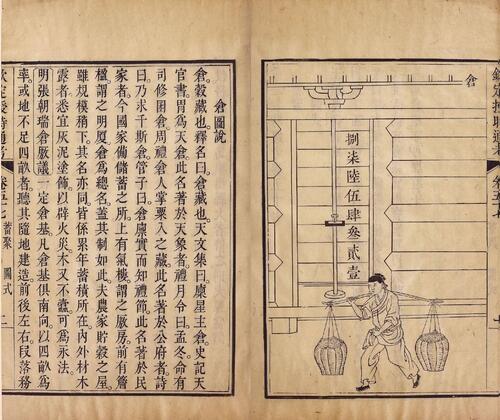 倉
捌柒陸伍肆叁貳壹
倉圖說
倉穀藏也釋名曰倉藏也天文集曰廩星主倉史記天
官書胃爲天倉此名著於天象者禮月令曰孟冬命有
司修囷倉周禮倉人掌粟入之藏此名著於公府者詩
曰乃求千斯倉管子曰倉廩實而知禮節此名著於民
家者今國家備儲蓄之所上有氣樓謂之厫房前有簷
楹謂之明厦倉爲總名蓋其制如此夫農家貯穀之屋
雖規模稍下其名亦同皆係累年蓄積所在內外材木
露者悉宜灰泥塗飾以辟火災木又不蠹可爲永法
明張朝瑞倉厫議一定倉基凡倉基俱南向以四畝爲
率或地不足四畝者聽其隨地建造前後左右段落務
欽定授時通考 卷五十七 蓄聚 圖式 二